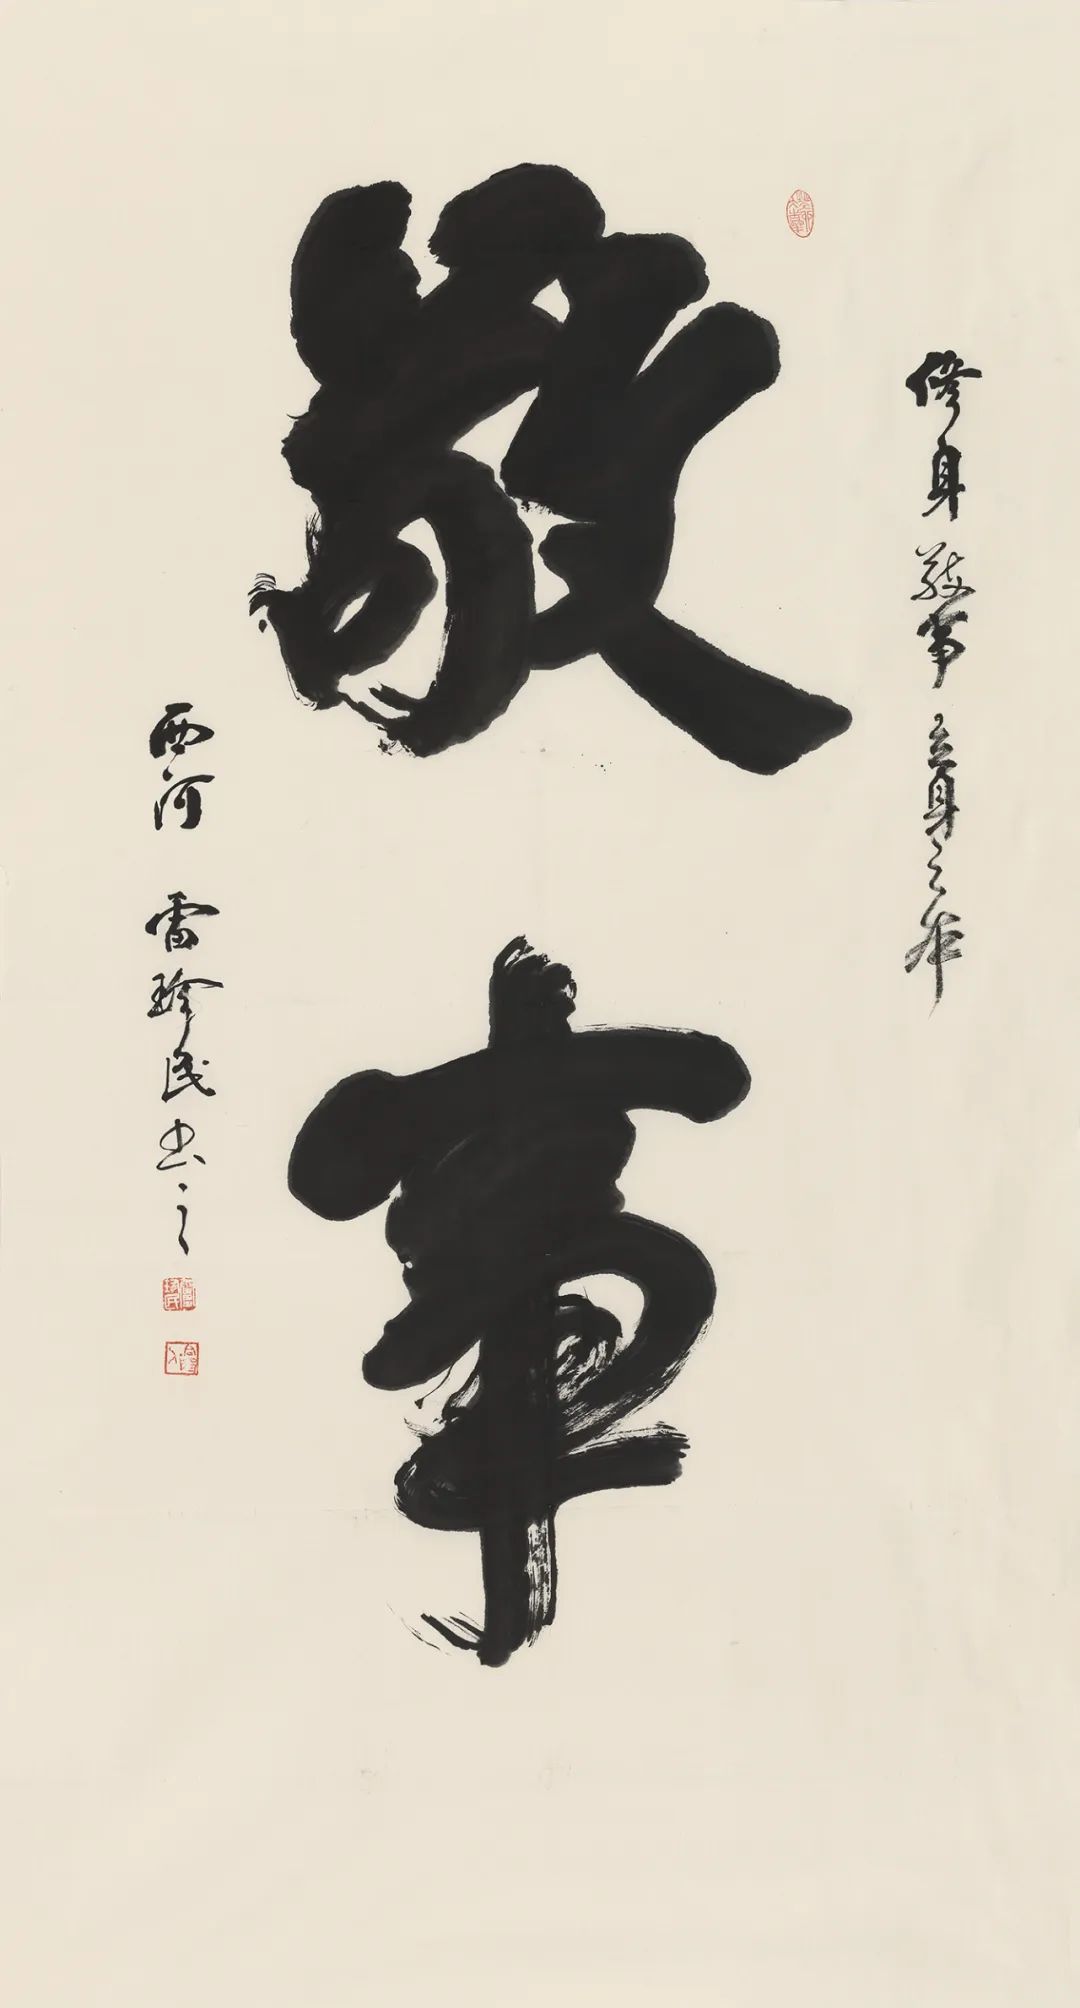 修身敬事立身之本
敬事
西河 雷珍民书之